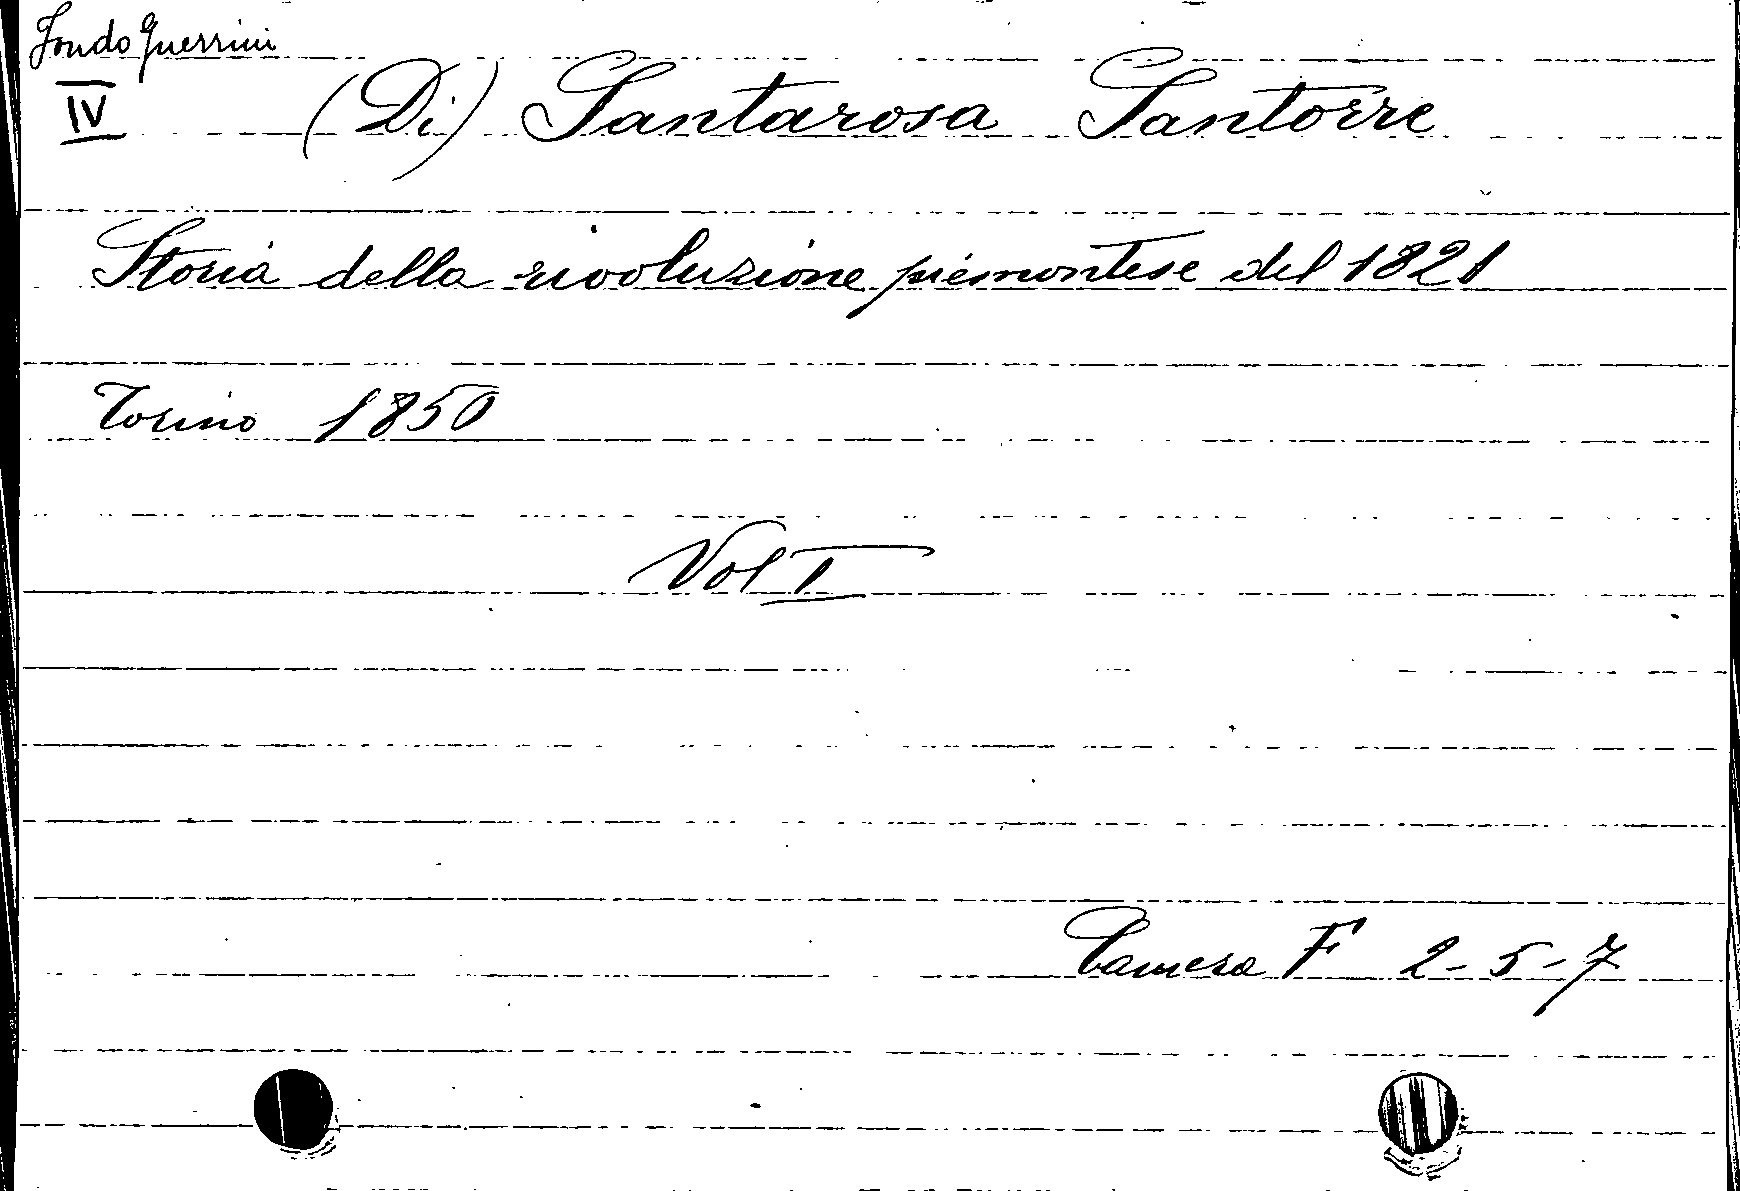 Fondo Guerrini
IV
(Di) Santarosa Santorre
Storia della rivoluzione piemontese del 1821
Torino 1850
Vol I
Camera F 2-5-7